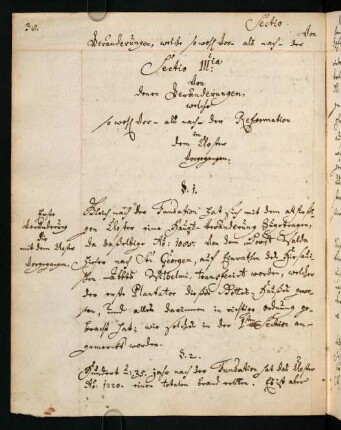 30.
Sectio. Von
Veränderungen, welche so wohl vor- als nach- der
Sectio III.tia
Von
denen Veränderungen,
welche
so wohl vor- als nach- der Reformation
in
dem Closter
vorgegangen.
§. 1.
Erste
Veränderung
die
mit dem Closter
vorgegangen.
Gleich nach der Fundation hat sich mit dem
Closter eine Haupt-Veränderung zugetragen,
da dasselbige Ao: von dem Porst Walda
hieher nach St: Georgen, auf einrathen des Hirsaui-
schen Abbts Wilhelmi, transferirt worden, welcher
der erste Plantator dieses Gottes-Hauses gewe-
sen, und alles darinnen in richtige ordnung ge-
bracht hat; wie solches in der 1.sten Section an-
gemerckt worden.
§. 2.
Hundert u: 35. jahr nach der Fundation hat das Closter
Ao: einen totalen brand erlitten. Es ist aber